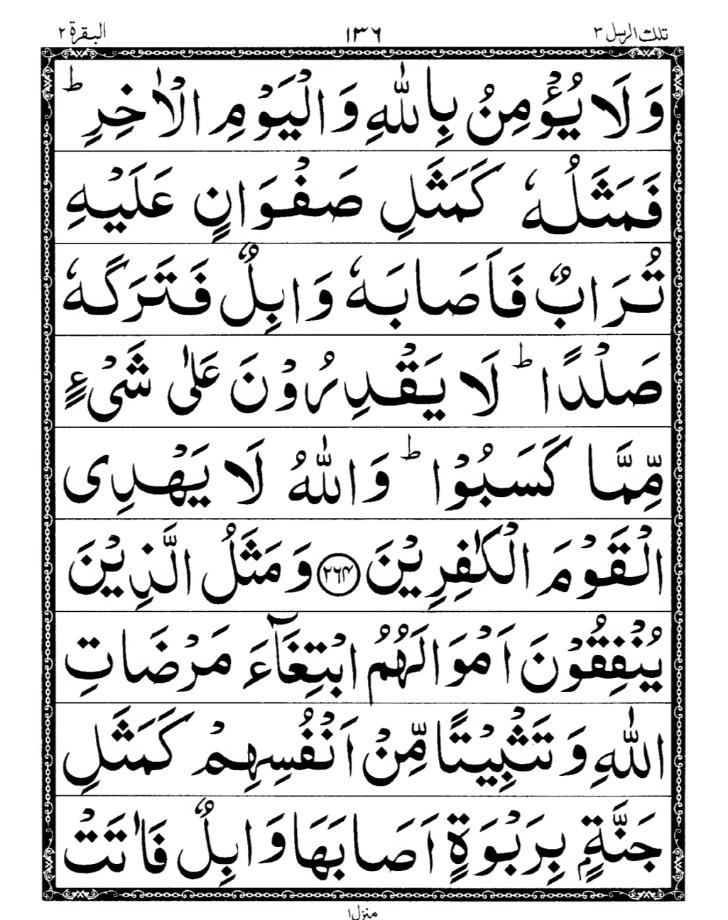 تلك الرسل ٣ ١٣٦ البقرة ٢
وَلَا يُؤْمِنُ بِاللّٰهِ وَالْيَوْمِ الْاٰخِرِ ؕ
فَمَثَلُهٗ كَمَثَلِ صَفْوَانٍ عَلَيْهِ
تُرَابٌ فَاَصَابَهٗ وَابِلٌ فَتَرَكَهٗ
صَلْدًا ؕ لَا يَقْدِرُوْنَ عَلٰى شَىْءٍ
مِّمَّا كَسَبُوْا ؕ وَاللّٰهُ لَا يَهْدِى
الْقَوْمَ الْكٰفِرِيْنَ ﴿۲۶۴﴾ وَمَثَلُ الَّذِيْنَ
يُنْفِقُوْنَ اَمْوَالَهُمُ ابْتِغَآءَ مَرْضَاتِ
اللّٰهِ وَتَثْبِيْتًا مِّنْ اَنْفُسِهِمْ كَمَثَلِ
جَنَّةٍۭ بِرَبْوَةٍ اَصَابَهَا وَابِلٌ فَاٰتَتْ
منزل ١